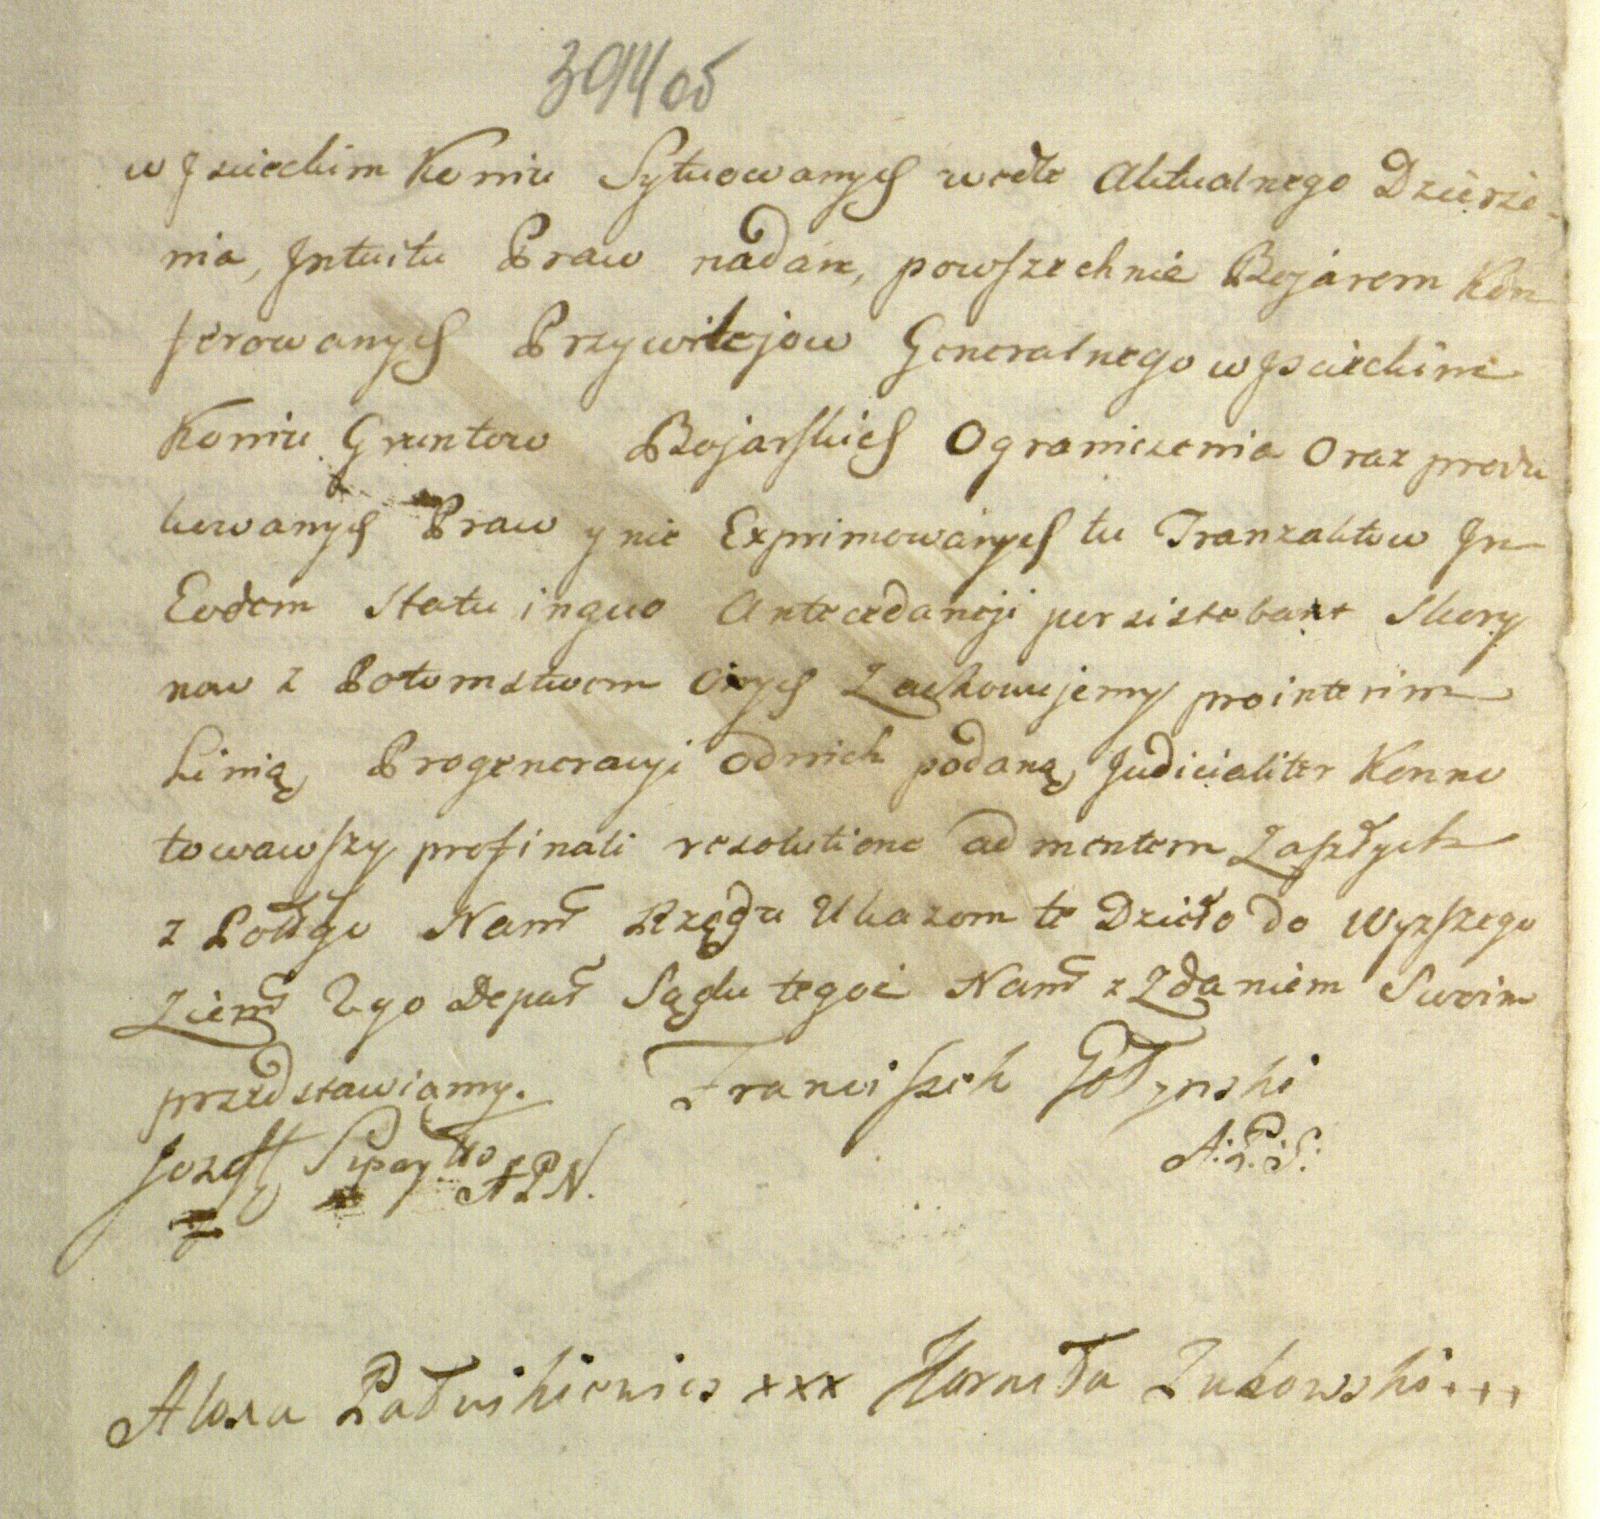 394 об
w Jscieckim Koniu Sytuowanych wedle Aktualnego Dzierże-
nia, Jntuitu Praw nadań, powszechnie Bojarom Kon
ferowanych Przywilejow Generalnego w Jscieckim
Koniu Gruntow Bojarskich Ograniczenia Oraz produ
kowanych Praw y nie Exprimowanych tu Tranzaktow Jn
Eodem Statu in quo Antecedancji persistebant Skory
now z Potomstwem Onych Zachowujemy pro interim
Linią Progeneracyi od nich podaną Judicialiter Konno
towawszy pro finali resolutione ad mentem Zaszłych
z Połłgo Nam Rządu Ukazom te Dzieło do Wyzszego
Ziem 2go Depar Sądu tegoż Nam z Zdaniem Swoim
przedstawiamy. Franciszek Gołynski
A: P: S:
Jozeff APN.
Alexa Pałuskiewicz xxx Harniła Zukowski +++